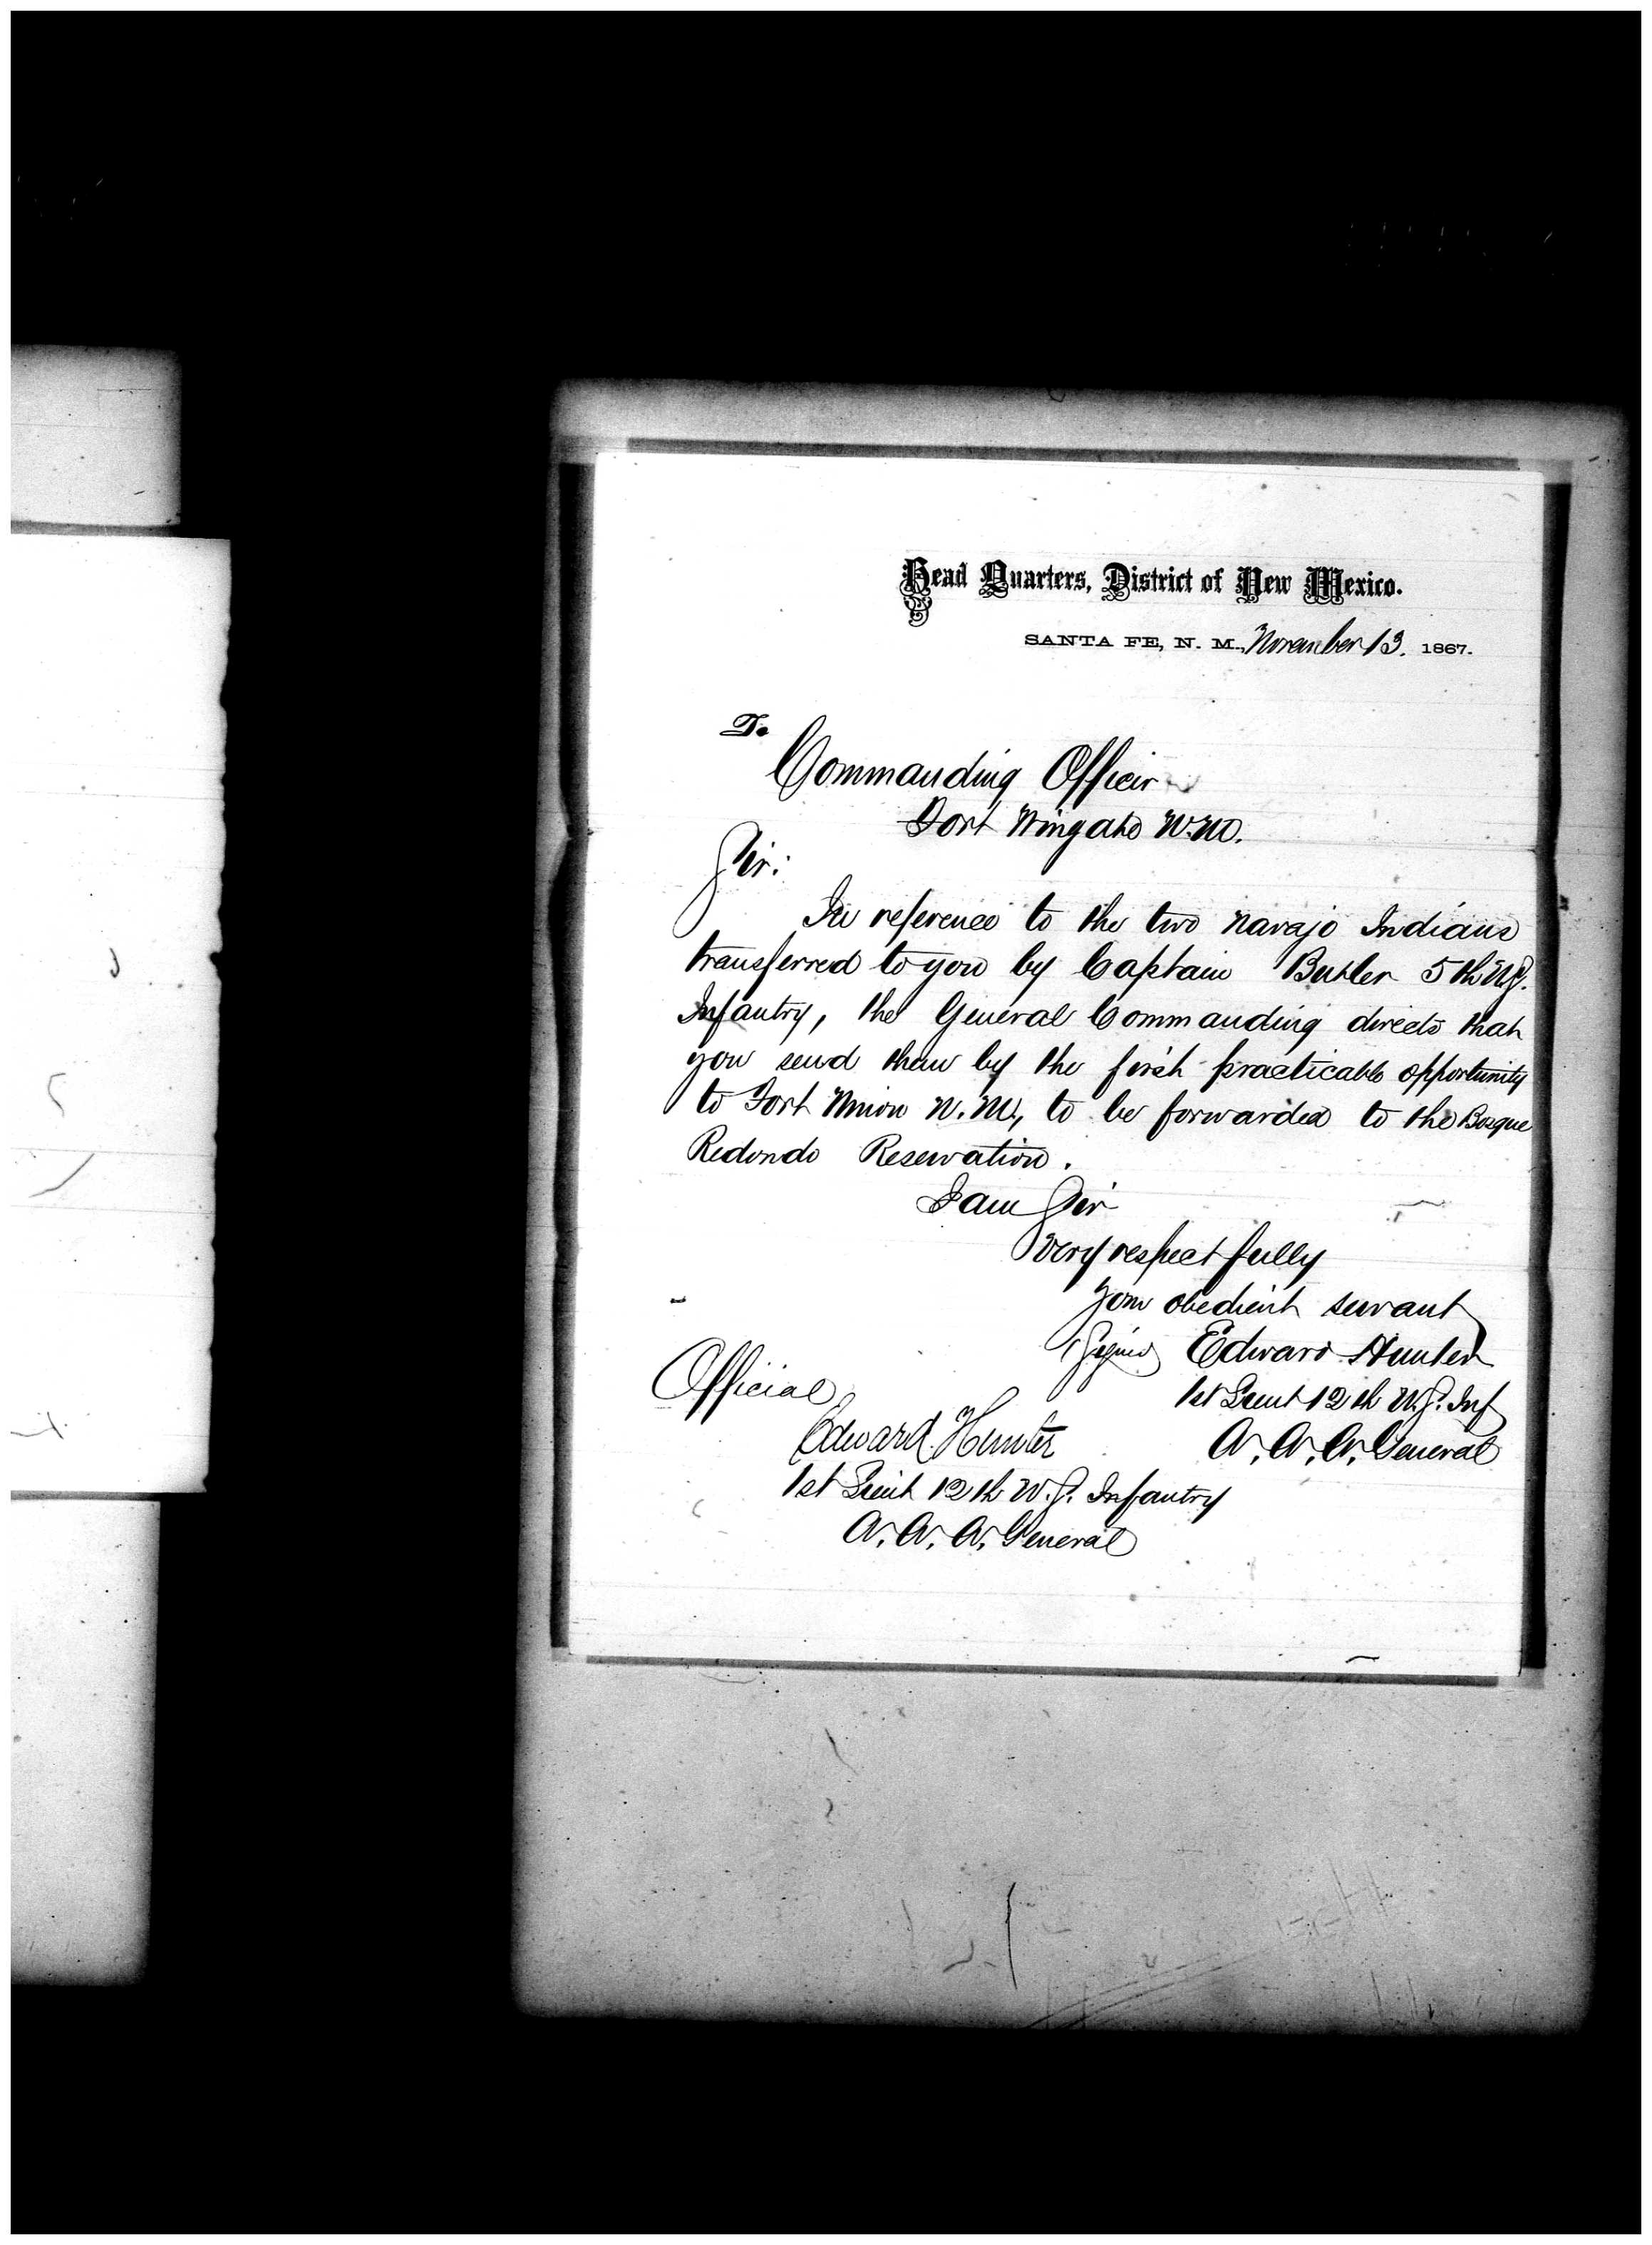 Head Quarters, District of New Mexico.
SANTA FE, N. M., November 13. 1867.
To
Commanding Officer
Fort Wingate N.M.
Sir:
In reference to the two Navajo Indians
transferred to you by Captain Butler 5th U.S.
Infantry, the General Commanding directs that
you send them by the first practicable opportunity
to Fort Union N.M., to be forwarded to the Bosque
Redondo Reservation.
I am Sir
Very respectfully
Your obedient servant
(Signed) Edward Hunter
1st Lieut 12th U.S. Inf
A. A. A. General
Official
Edward Hunter
1st Lieut 12th U.S. Infantry
A. A. A. General